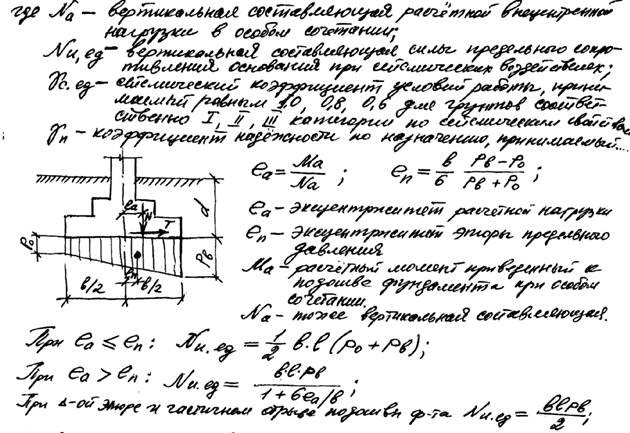 где Nа – вертикальная составляющая расчётной внецентренной
нагрузки в особом сочетании;
Nи,ед – вертикальная составляющая силы предельного сопро-
тивления основания при сейсмических воздействиях;
γс.ед – сейсмический коэффициент условий работы, прини-
маемый равным 1.0, 0,8, 0,6 для грунтов соответ-
ственно I, II, III категории по сейсмическим свойствам
γп – коэффициент надёжности по назначению, принимаемый...
eа = Mа / Nа ; eп = в/6 · (Pв – P0) / (Pв + P0) ;
eа – эксцентриситет расчётной нагрузки
eп – эксцентриситет эпюры предельного
давления
Mа – расчётный момент приведенный к
подошве фундамента при особом
сочетании.
Nа – тоже вертикальная составляющая.
eа N T d
P0 Pв
в/2 eп в/2
При eа ≤ eп : Nи.ед = 1/2 в.l (P0 + Pв);
При eа > eп : Nи.ед = в.l.Pв / (1 + 6eа/в) ;
При Δ-ой эпюре и частичном отрыве подошвы ф-та Nи.ед = вlPв / 2 ;